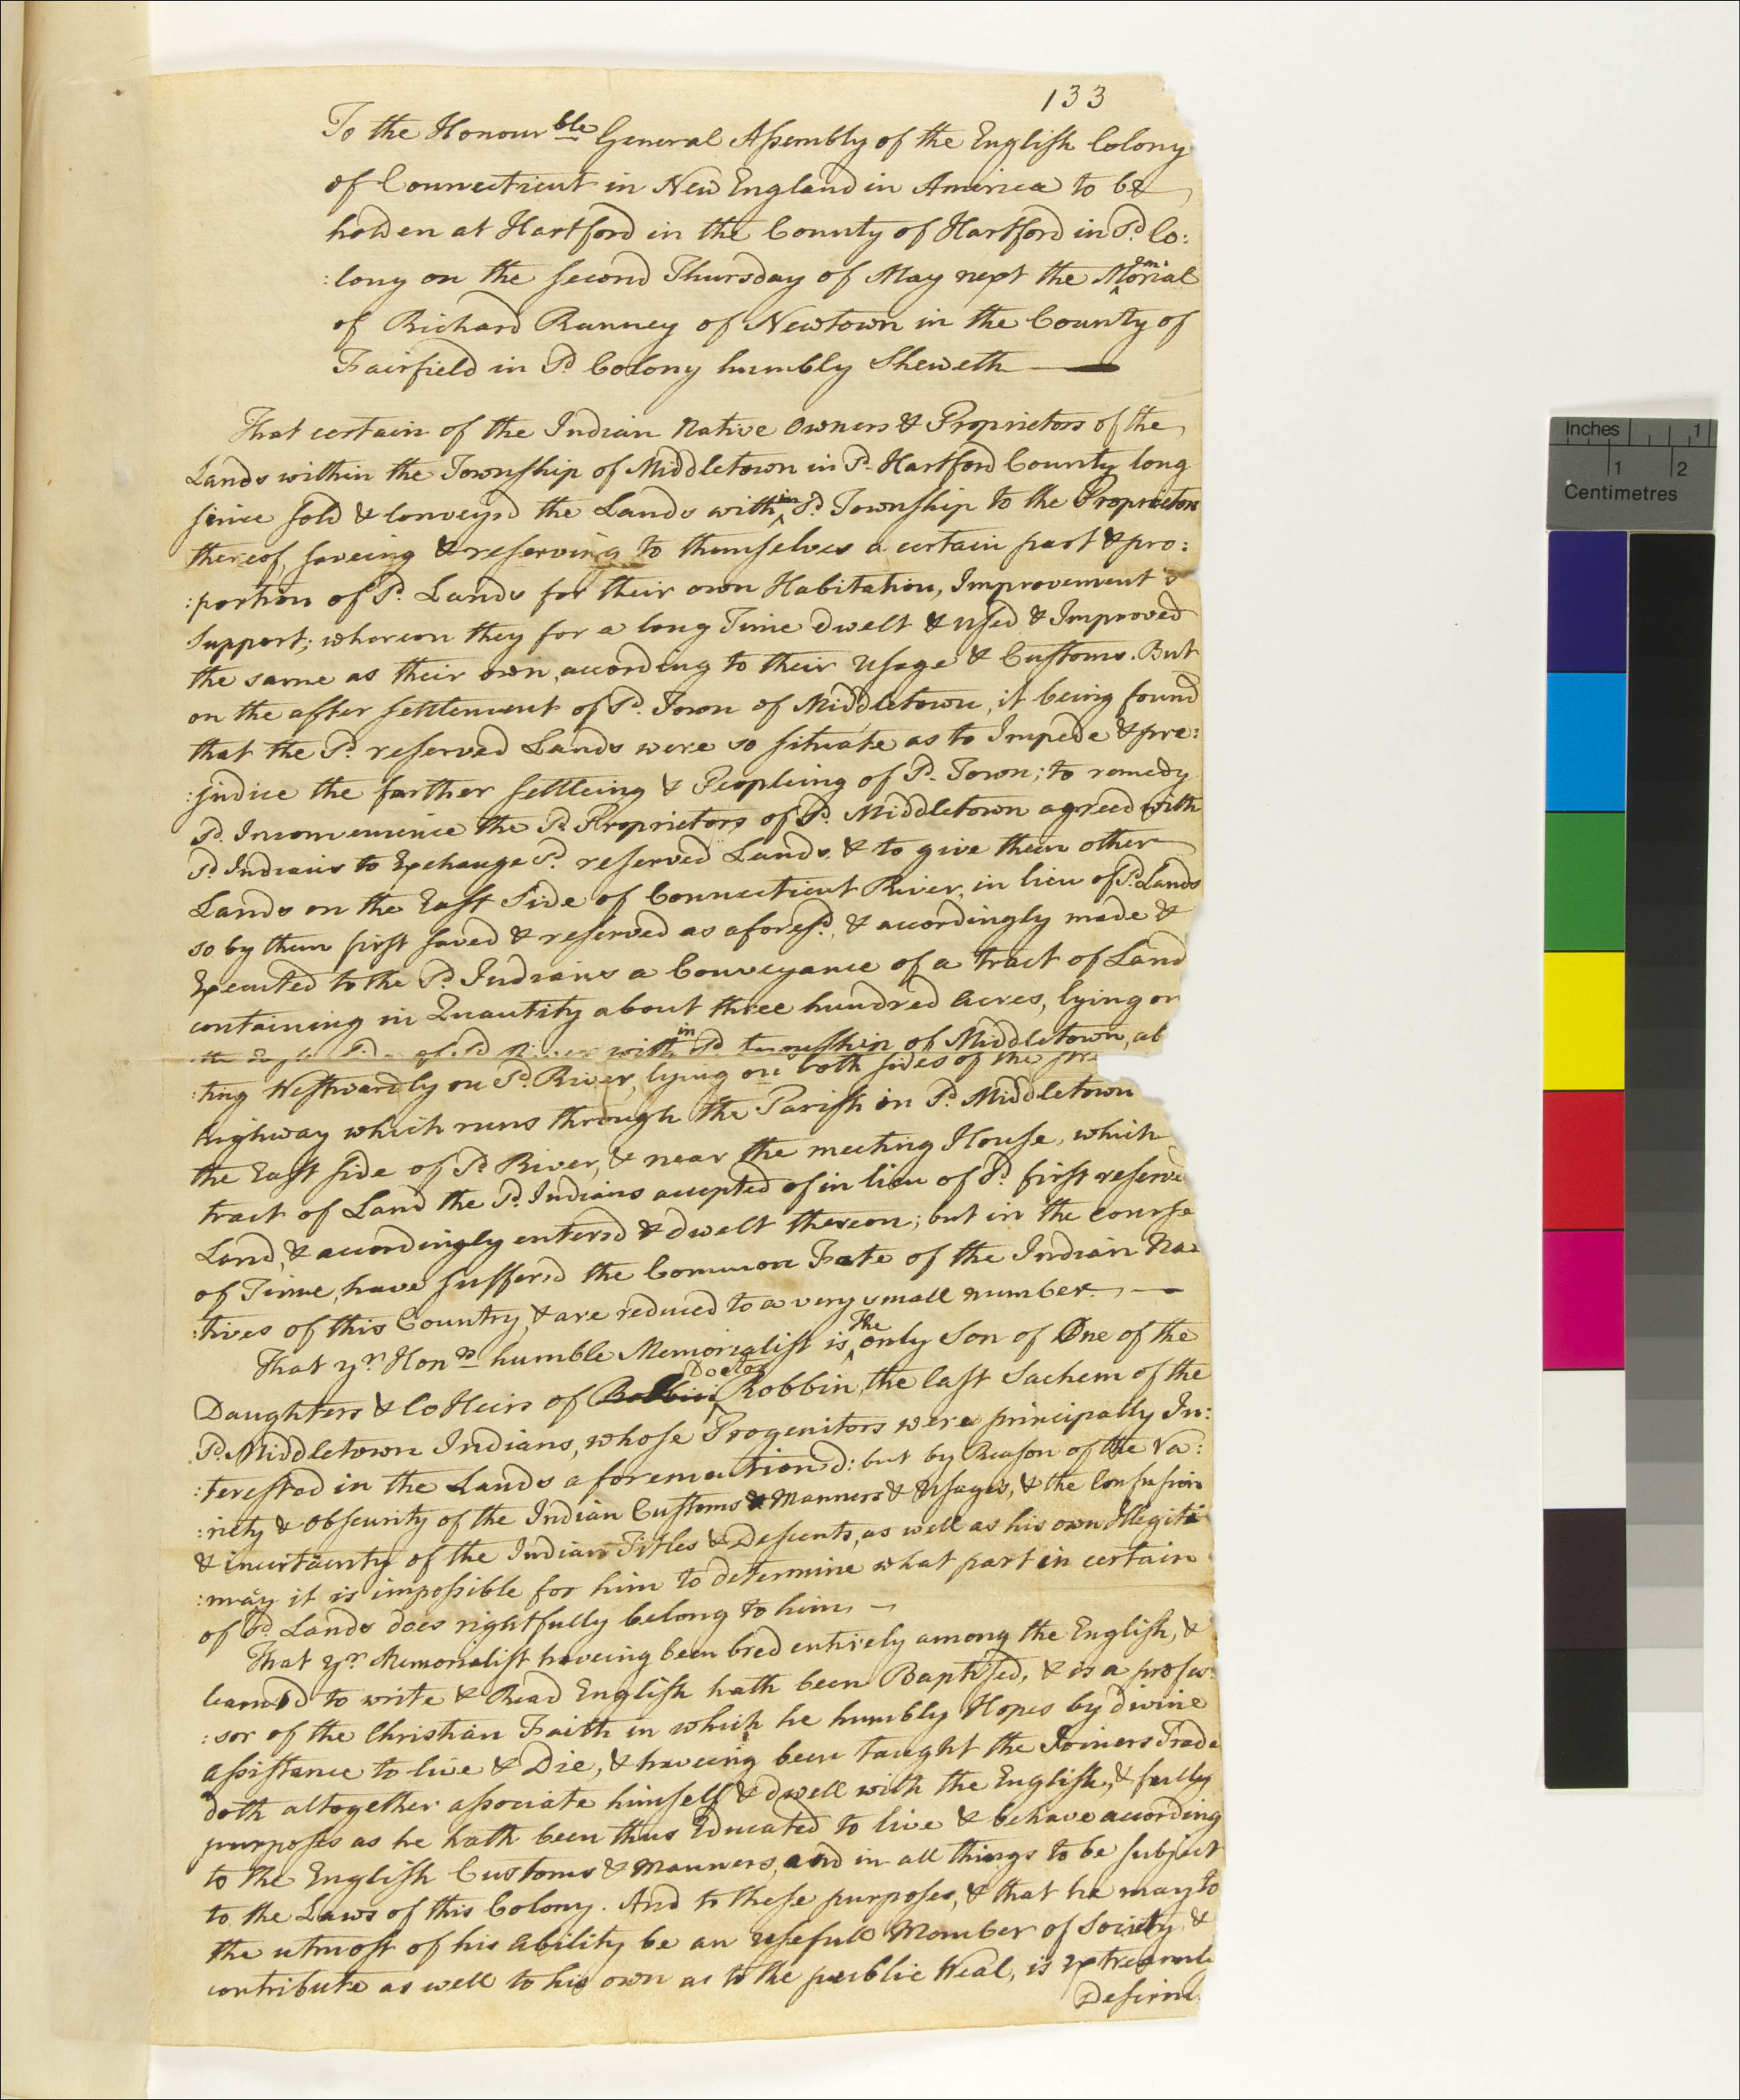 133
To the Honourble General Assembly of the English Colony
of Connecticut in New England in America to be
holden at Hartford in the County of Hartford in Sd. Co:
:lony on the second Thursday of May next the Memorial
of Richard Ranney of Newtown in the County of
Fairfield in Sd Colony humbly Sheweth
That certain of the Indian Native Owners & Proprietors of the
Lands within the Township of Middletown in Sd Hartford County long
since sold & convey'd the Lands within Sd. Township to the Proprietors
thereof, saveing & reserving to themselves a certain part & pro:
:portion of Sd. Lands for their own Habitation, Improvement &
Support; whereon they for a long Time dwelt & used & Improved
the same as their own, according to their Usage & Customs. But
on the after settlement of Sd. Town of Middletown, it being found
that the Sd. reserved Lands were so situate as to Impede & pre:
:judice the farther settleing & Peopleing of Sd. Town; to remedy
Sd. Inconvenience the Sd Proprietors of Sd. Middletown agreed with
Sd. Indians to Exchange Sd. reserved Lands, & to give them other
Lands on the East Side of Connecticut River, in lieu of Sd. Lands
so by them first saved & reserved as aforesd. & accordingly made &
Executed to the Sd. Indians a Conveyance of a tract of Land
containing in Quantity about three hundred Acres, lying on
the East Side of Sd River within Sd. township of Middletown, ab
:ting Westwardly on Sd. River, lying on both sides of the
highway which runs through the Parish in Sd. Middletown
the East side of Sd River, & near the meeting House, which
tract of Land the Sd. Indians accepted of in lieu of Sd. first reserve
Land, & accordingly enter'd & dwelt thereon; but in the course
of Time, have suffer'd the Common Fate of the Indian Na:
:tives of this Country, & are reduced to a very small number.
That yr. Honrs humble Memorialist is the only Son of One of the
Daughters & CoHeirs of Doctor Robbin, the last Sachem of the
Sd. Middletown Indians, whose Progenitors were principally In:
:terested in the Lands aforemention'd: but by Reason of the Va:
:riety & Obscurity of the Indian Customs & Manners & Usages, & the Confusion
& incertainty of the Indian Titles & Descents, as well as his own Illegiti
:macy it is impossible for him to determine what part in certain
of Sd. Lands does rightfully belong to him.
That yr. Memorialist haveing been bred entirely among the English, &
learned to write & Read English hath been Baptised, & is a profes:
:sor of the Christian Faith in which he humbly Hopes by divine
assistance to live & Die, & haveing been taught the Joiners Trade
doth altogether associate himself & dwell with the English, & fully
purposes as he hath been thus Educated to live & behave according
to the English Customs & Manners, and in all things to be subject
to the Laws of this Colony. And to these purposes, & that he may to
the utmost of his Ability be an usefull Member of Society &
contribute as well to his own as to the publick Weal, is extreamly
Desirou